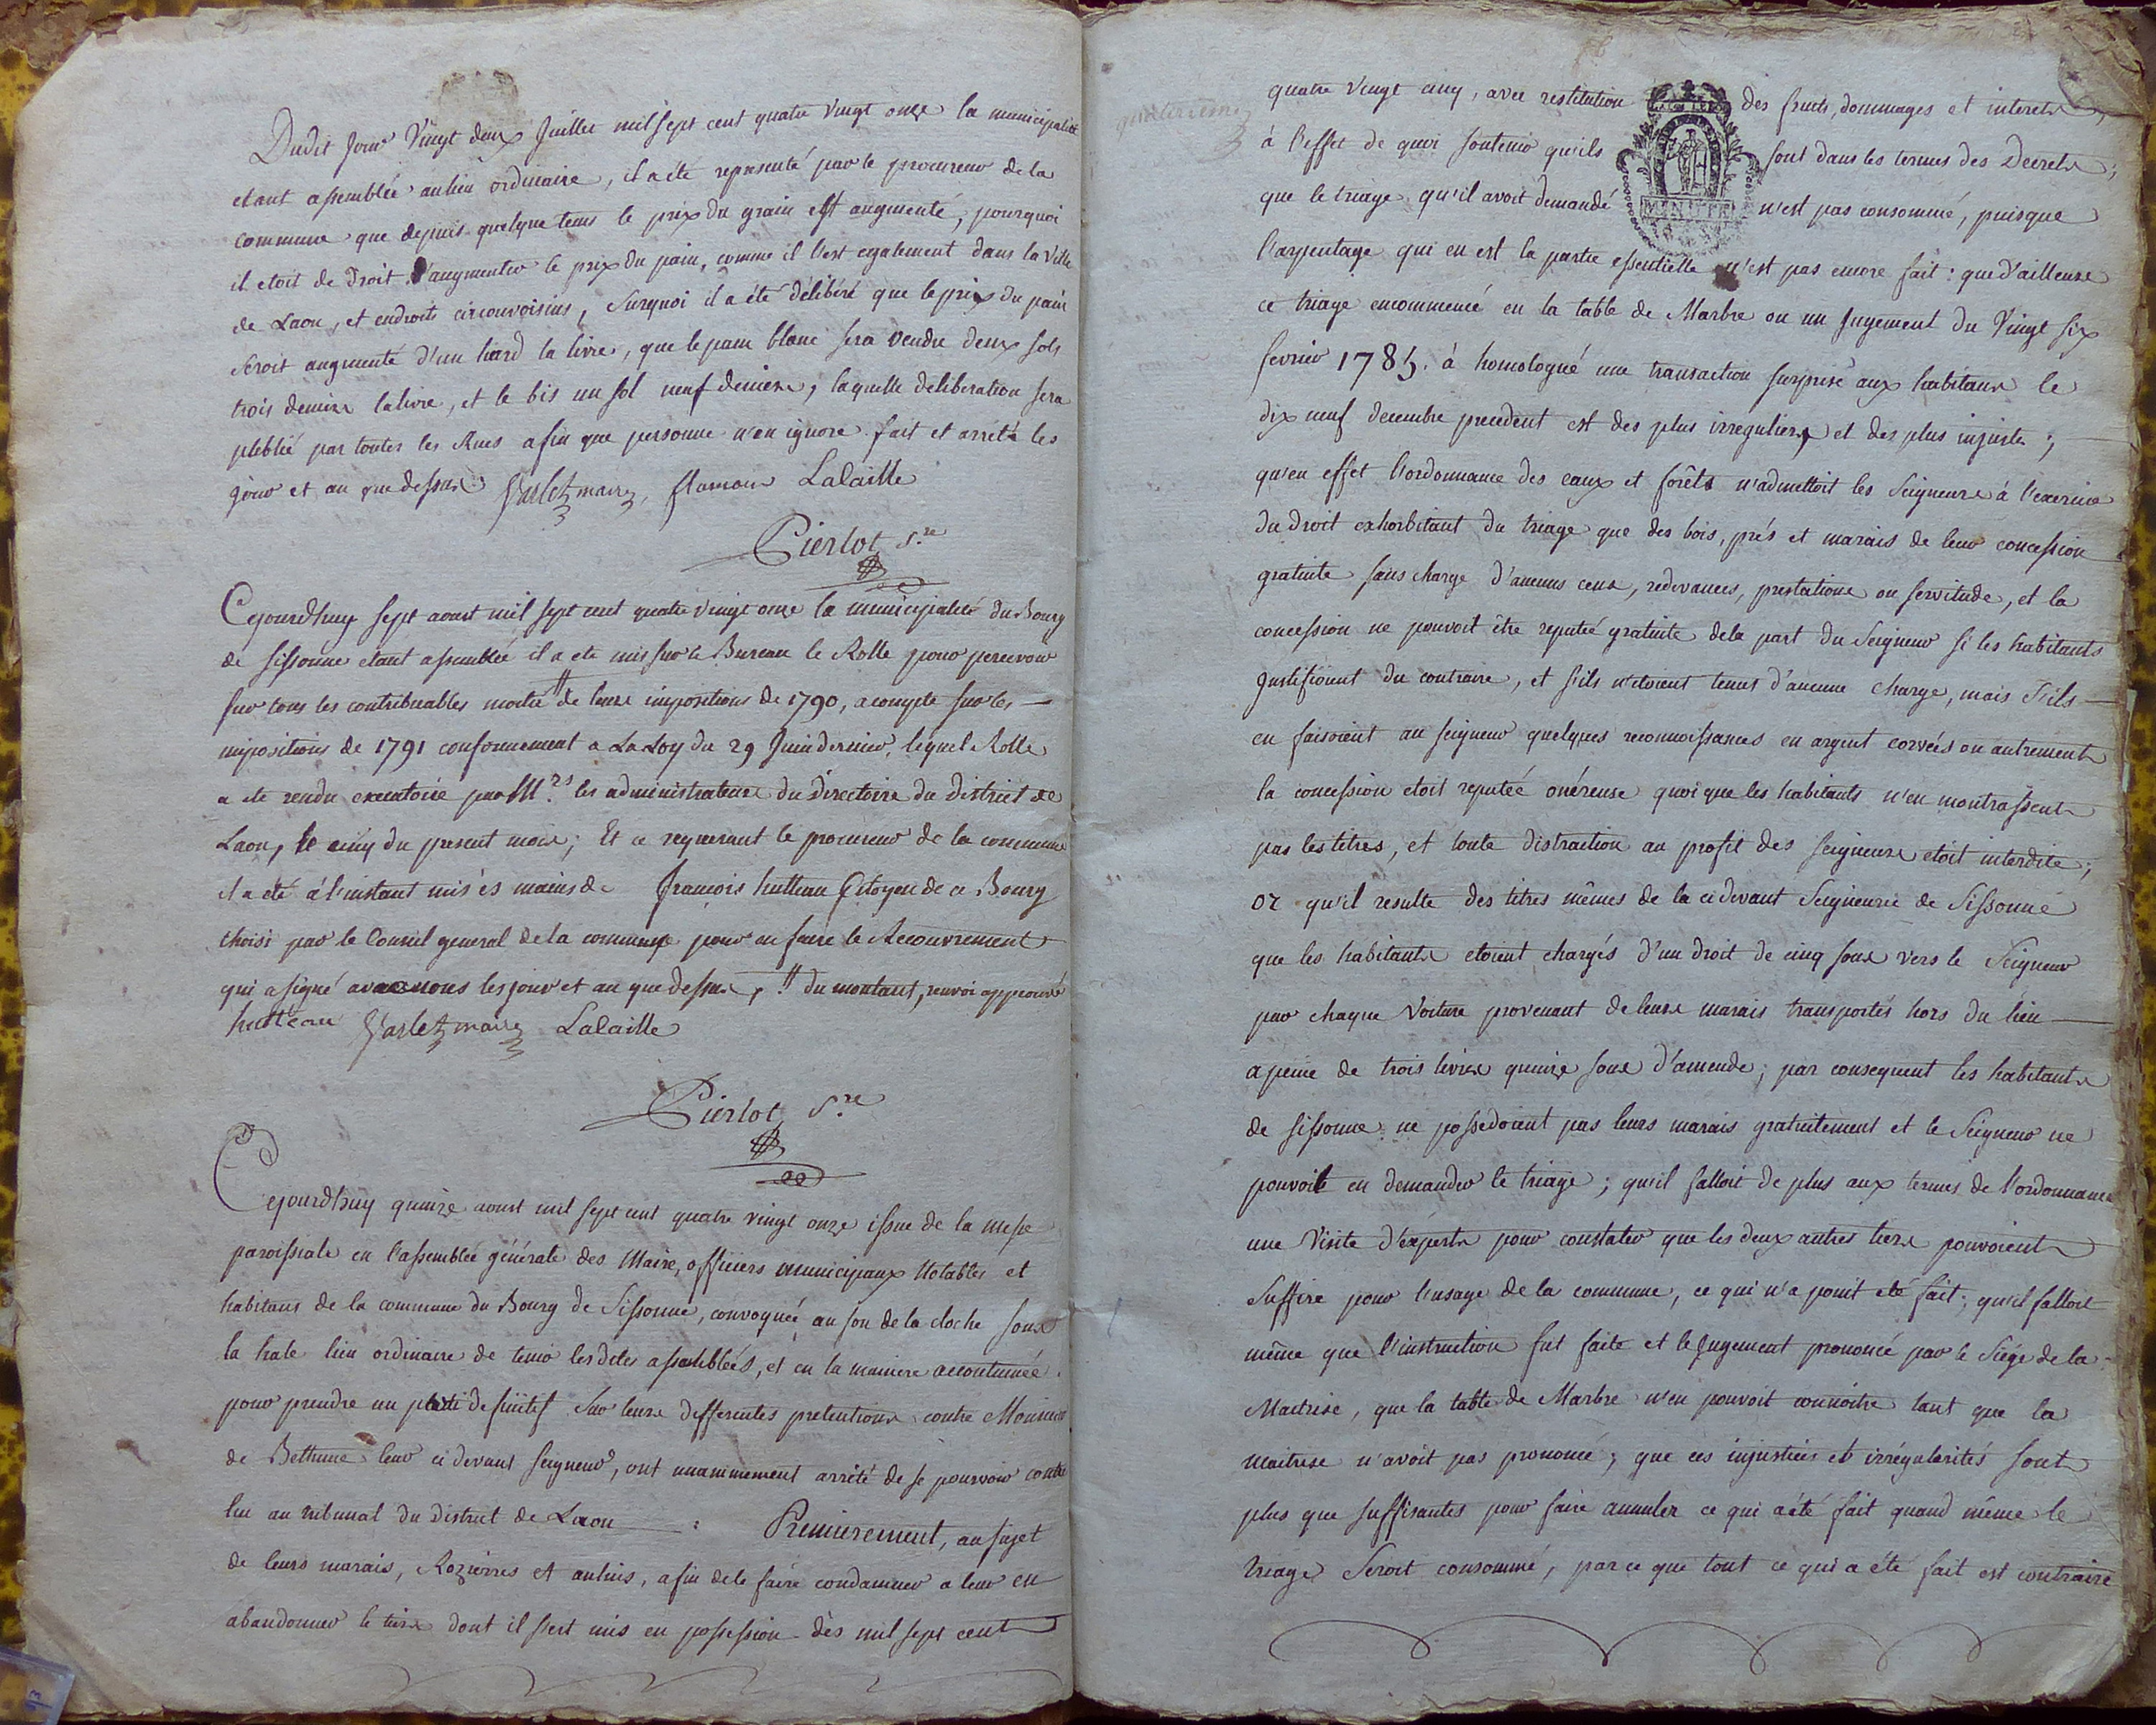 Dudit jour Vingt deux Juillet mil sept cent quatre vingt onze la municipalité
etant assemblée au lieu ordinaire, il a été representé par le procureur de la
commune que depuis quelque tems le prix du grain est augmenté, pourquoi
il etoit de Droit d'augmenter le prix du pain, comme il l'est egalement dans la Ville
de Laon, et endroits circonvoisins, Surquoi il a été délibéré que le prix du pain
seroit augmenté d'un liard la livre, que le pain blanc sera vendu deux sols
trois deniers la livre, et le bis un sol neuf deniers, laquelle deliberation sera
pleblié par toutes les Rues afin que personne n'en ignore. fait et arrêté les
jour et an que dessus maire, flamain Lalaille
Pierlot S.re
Cejourdhuy sept aoust mil sept cent quatre vingt onze la municipalité du Bourg
de Sissonne etant assemblée il a ete mis sur le Bureau le Rolle pour percevoir
sur tous les contribuables moitié # de leurs impositions de 1790, acompte sur les
impositions de 1791 conformement a La Loy du 29 Juin dernier, lequel Rolle
a ete rendu executoire par M.rs les administrateurs du Directoire du District de
Laon, le cinq du present mois; Et ce requerant le procureur de la commune
il a été à l'instant mis ès mains de François hutteau Citoyen de ce Bourg
choisi par le Conseil general de la commune pour en faire le Recouvrement
qui a signé avec nous les jour et an que dessus, # du montant, renvoi approuvé
hutteau maire Lalaille
Pierlot S.re
Cejourdhuy quinze aoust mil sept cent quatre vingt onze issue de la messe
paroissiale en l'assemblée générale des Maire, officiers municipaux Notables et
habitans de la commune du Bourg de Sissonne, convoquée au son de la cloche sous
la hale lieu ordinaire de tenir lesdites assemblées, et en la maniere accoutumée
pour prendre un parti definitif Sur leurs differentes pretentions contre Monsieur
de Bethune leur ci devant seigneur, ont unanimement arrêté de se pourvoir contre
lui au tribunal du district de Laon : Premierement, au sujet
de leurs marais, Rozierres et aulnis, afin de le faire condamner a leur en
abandonner le tiers dont il s'est mis en possession dès mil sept cent
quatre vingt cinq, avec restitution des fruits, dommages et interets,
à l'effet de quoi soutenir qu'ils sont dans les termes des Decrets;
que le triage qu'il avoit demandé n'est pas consommé, puisque
MINUTE
l'arpentage qui en est la partie essentielle n'est pas encore fait: que d'ailleurs
ce triage encommencé en la table de Marbre ou un Jugement du Vingt six
fevrier 1785. à homologué une transaction surprise aux habitans le
dix neuf decembre precedent est des plus irreguliers et des plus injuste;
qu'en effet l'ordonnance des eaux et forêts n'admettoit les Seigneurs à l'exercice
du droit exhorbitant du triage que des bois, prés et marais de leur concession
gratuite sans charge d'aucuns cens, redevances, prestations ou servitude, et la
concession ne pouvoit être reputée gratuite de la part du Seigneur si les habitants
Justifioient du contraire, et s'ils n'etoient tenus d'aucune charge, mais s'ils
en faisoient au seigneur quelques reconnoissances en argent corvées ou autrement
la concession etoit reputée onéreuse quoique les habitants n'en montrassent
pas les titres, et toute distraction au profit des seigneurs etoit interdite;
or qu'il resulte des titres mêmes de la ci devant Seigneurie de Sissonne
que les habitants etoient chargés d'un droit de cinq sous vers le Seigneur
par chaque Voiture provenant de leurs marais transportés hors du lieu
a peine de trois livres quinze sous d'amende; par consequent les habitants
de Sissonne ne possedoient pas leurs marais gratuitement et le Seigneur ne
pouvoit en demander le triage; qu'il falloit de plus aux termes de l'ordonnance
une Visite d'experts pour constater que les deux autres tiers pouvoient
Suffire pour l'usage de la commune, ce qui n'a point été fait; qu'il falloit
même que l'instruction fut faite et le Jugement prononcé par le Siége de la
Maitrise, que la table de Marbre n'en pouvoit connoitre tant que la
maitrise n'avoit pas prononcé; que ces injustices et irrégularités sont
plus que suffisantes pour faire annuler ce qui a été fait quand même le
triage Seroit consommé, par ce que tout ce qui a été fait est contraire